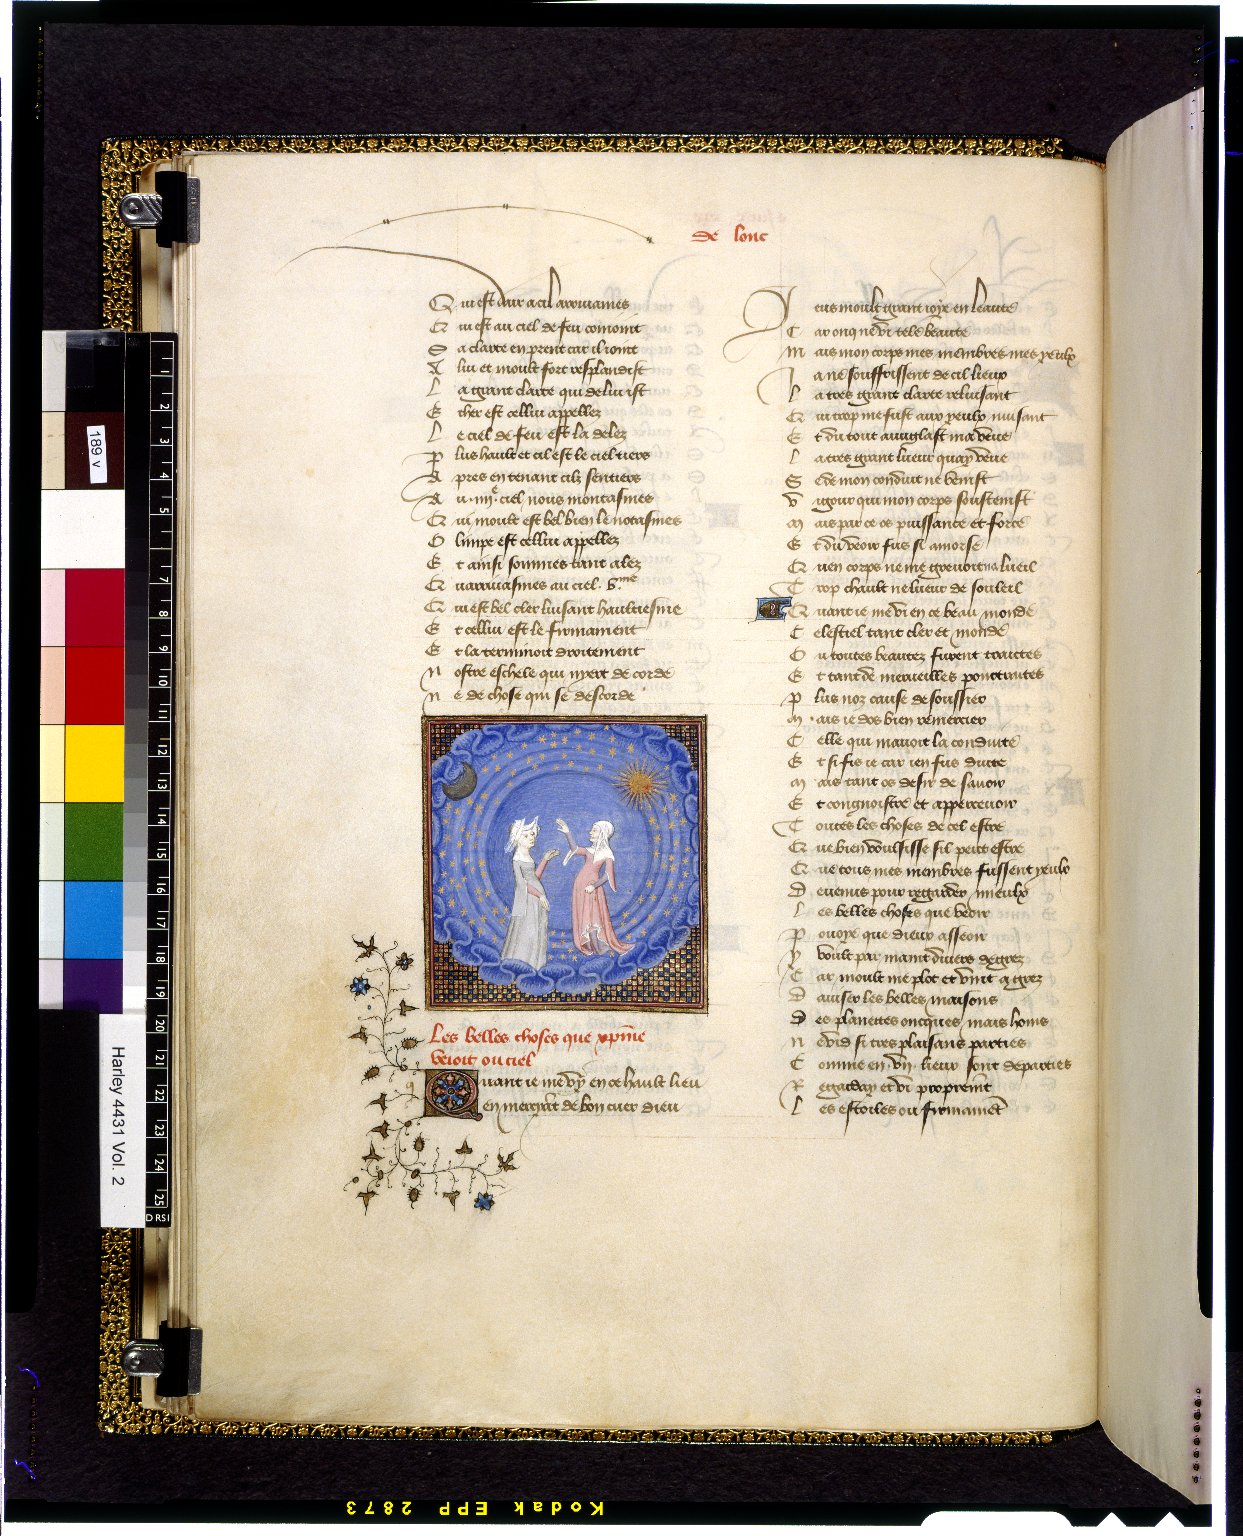 de lonc
Qui est dair a cil arrivames
Qui est au ciel de feu conioint
Sa clarte en prent car il ioint
A lui et moult fort resplandist
La grant clarte qui de lui ist
Ether est cellui appellez
Le ciel de feu est la delez
Plus hault et cil est le ciel tiers
Apres en tenant cilz sentiers
Au .iiii.e ciel nous montasmes
Qui moult est bel bien le notasmes
Olimpe est cellui appellez
Et ainsi sommes tant alez
Quarrivasmes au ciel .v.me
Qui est bel cler luisant haultiesme
Et cellui est le firmament
Et la terminoit droitement
Nostre eschele qui nyert de corde
Ne de chose qui se descorde
Les belles choses que xpine
veioit ou ciel
Quant ie me vy en ce hault lieu
en merciant de bon cuer dieu
Ieus moult grant ioye en leaute
Car oncq ne vi tele beaute
Mais mon corps mes membres mes yeulx
Ja ne souffrissent de cil lieux
La tres grant clarte reluisant
Qui trop me fust aux yeulx nuisant
Et du tout avuglast ma veue
La tres grant lueur quay veue
Se de mon conduit ne venist
Vigour qui mon corps soustenist
Mais par ce os puissance et force
Et du veoir fus si amorse
Quen corps ne me grevoit na lueil
Trop chault ne lueur de souleil
Quant ie me vi en ce beau monde
Celestiel tant cler et monde
Ou toutes beautez furent traictes
Et tant de merveilles pourtraites
Plus noz cause de soussier
Mais ie dos bien remercier
Celle qui mavoit la conduite
Et si fis ie car ien fus duite
Mais tant os desir de savoir
Et congnoistre et appercevoir
Toutes les choses de cel estre
Que bien voulsisse sil peust estre
Que tous mes membres fussent yeulx
Devenus pour regarder mieulx
Les belles choses que veoir
Povoye que dieux asseoir
Y voult par maint divers degrez
Car moult me plot et vint a grez
Daviser les belles maisons
Des planettes oncques mais homs
Ne vid si tres plaisans parties
Comme en un lieux sont departies
Regarday et vi proprement
Les estoiles ou firmament
189 v
Harley 4431 Vol. 2
1
2
3
4
5
6
7
8
9
10
11
12
13
14
15
16
17
18
19
20
21
22
23
24
25
DRSI
Kodak EPP 2873